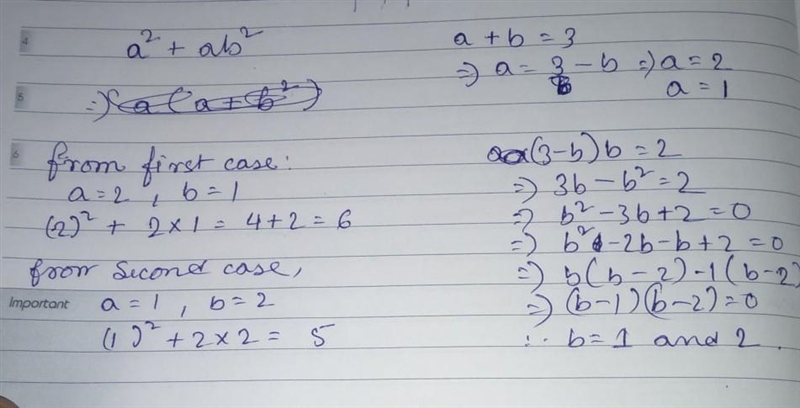 4
a² + ab²
5
⇒ (a(a + b²))
6
from first case:
a = 2 , b = 1
(2)² + 2×1 = 4+2 = 6
from second case,
Important
a = 1 , b = 2
(1)² + 2×2 = 5
a + b = 3
⇒ a = 3 - b ⇒ a = 2
a = 1
(3-b) b = 2
⇒ 3b - b² = 2
⇒ b² - 3b + 2 = 0
⇒ b² - 2b - b + 2 = 0
⇒ b(b-2) - 1(b-2)
⇒ (b-1)(b-2) = 0
∴ b = 1 and 2.